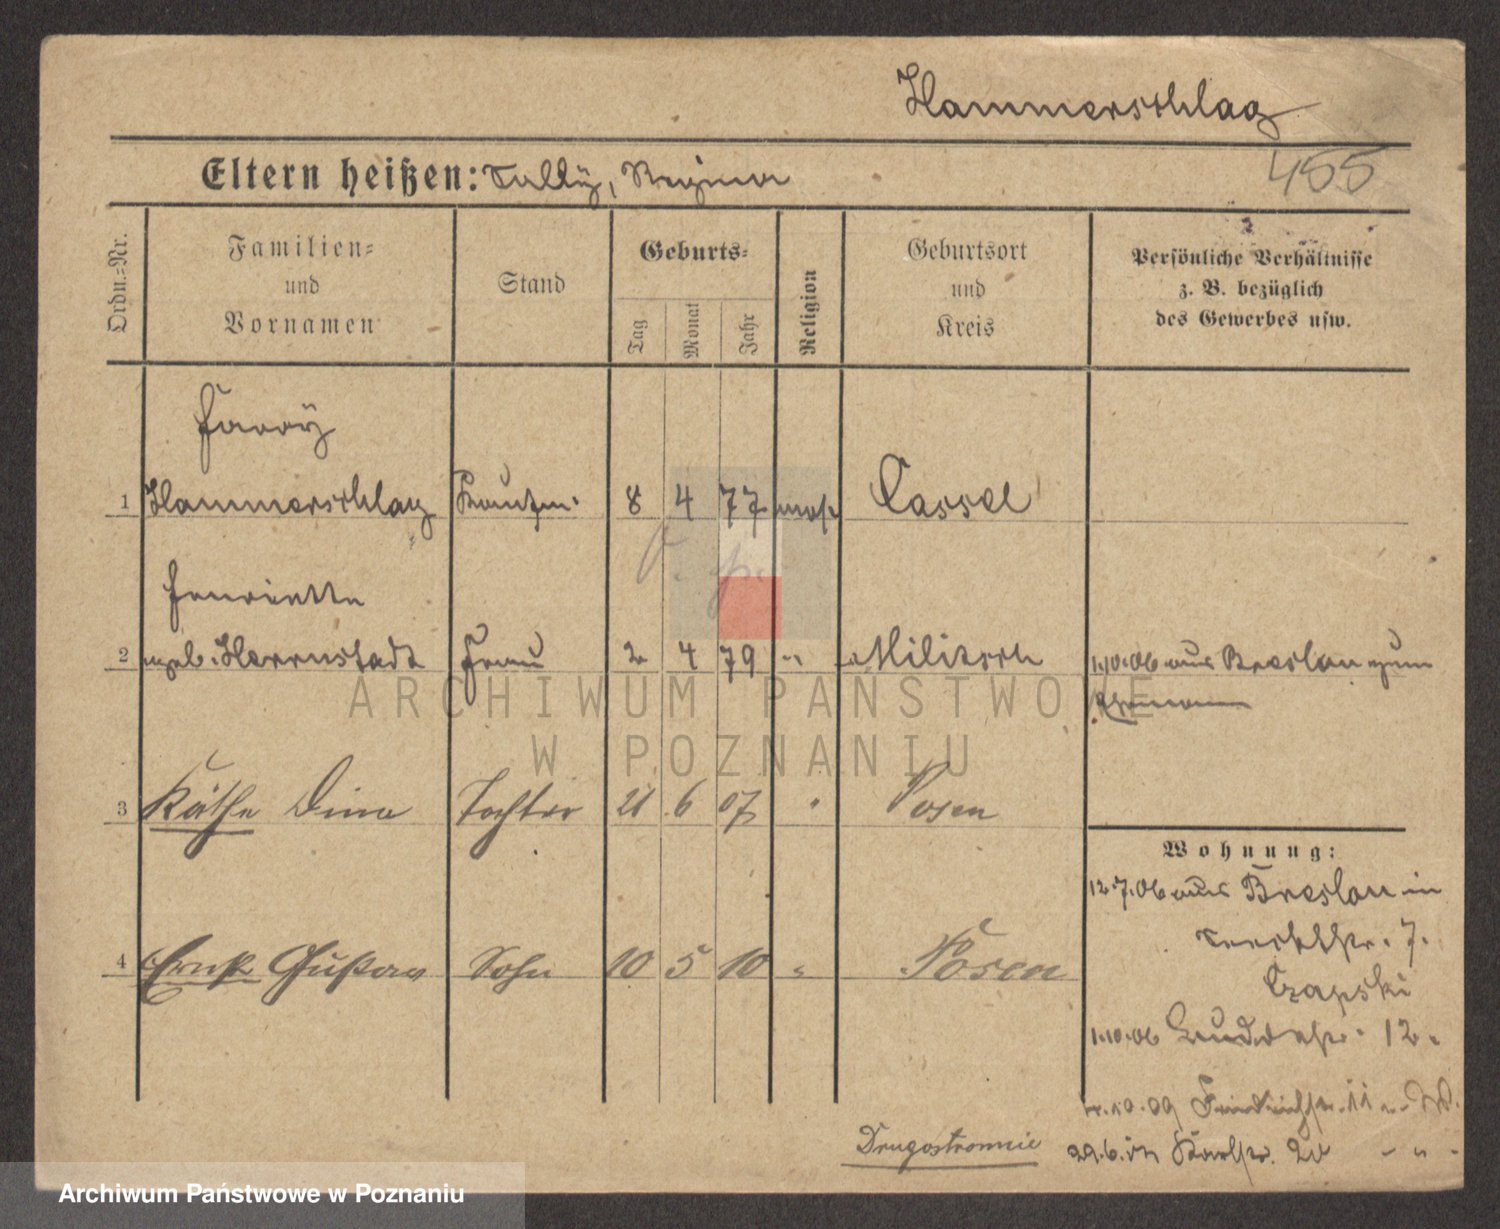 Hammerschlag
455
Eltern heißen: Sally, Regina
Ordn.=Nr.
Familien=
und
Vornamen
Stand
Geburts=
Tag
Monat
Jahr
Religion
Geburtsort
und
Kreis
Persönliche Verhältnisse
z. B. bezüglich
des Gewerbes usw.
Harry
1 Hammerschlag Kaufm. 8 4 77 mos. Cassel
Henriette
2 geb. Herrnstadt Frau 2 4 79 " Militsch 1.10.06 aus Breslau zum
Ehemann
3 Käthe Dina Tochter 21 6 07 " Posen
Wohnung:
12.7.06 aus Breslau in
7.
Czapski
4 Ernst Gustav Sohn 10 5 10 " Posen
1.10.06 12.
10.09 Friedrichstr. 11
Drugostronnie
29.6. Karlstr.
ARCHIWUM PAŃSTWOWE
W POZNANIU
Archiwum Państwowe w Poznaniu